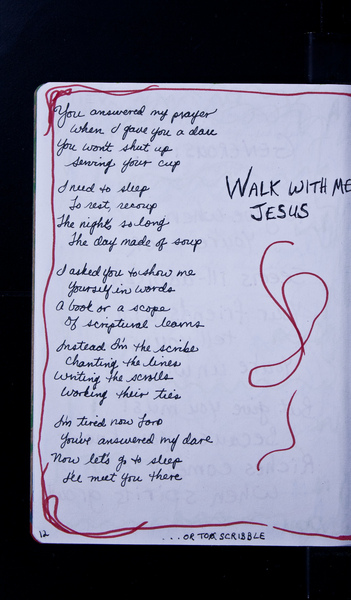 You answered my prayer
When I gave you a dare
You won't shut up
Serving your cup
I need to sleep
To rest, recoup
The night's so long
The day made of soup
I asked you to show me
Yourself in words
A book or a scope
Of scriptural learns
Instead I'm the scribe
Chanting the lines
Writing the scrolls
Working their ties
I'm tired now Lord
You've answered my dare
Now let's go to sleep
I'll meet you there
WALK WITH ME
JESUS
12
...OR TO SCRIBBLE